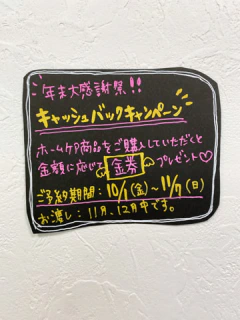 年末大感謝祭!!
キャッシュバックキャンペーン
ホームケア商品をご購入していただくと
金額に応じて金券プレゼント♡
ご予約期間:10/1(金)~11/7(日)
お渡し:11月、12月中です。